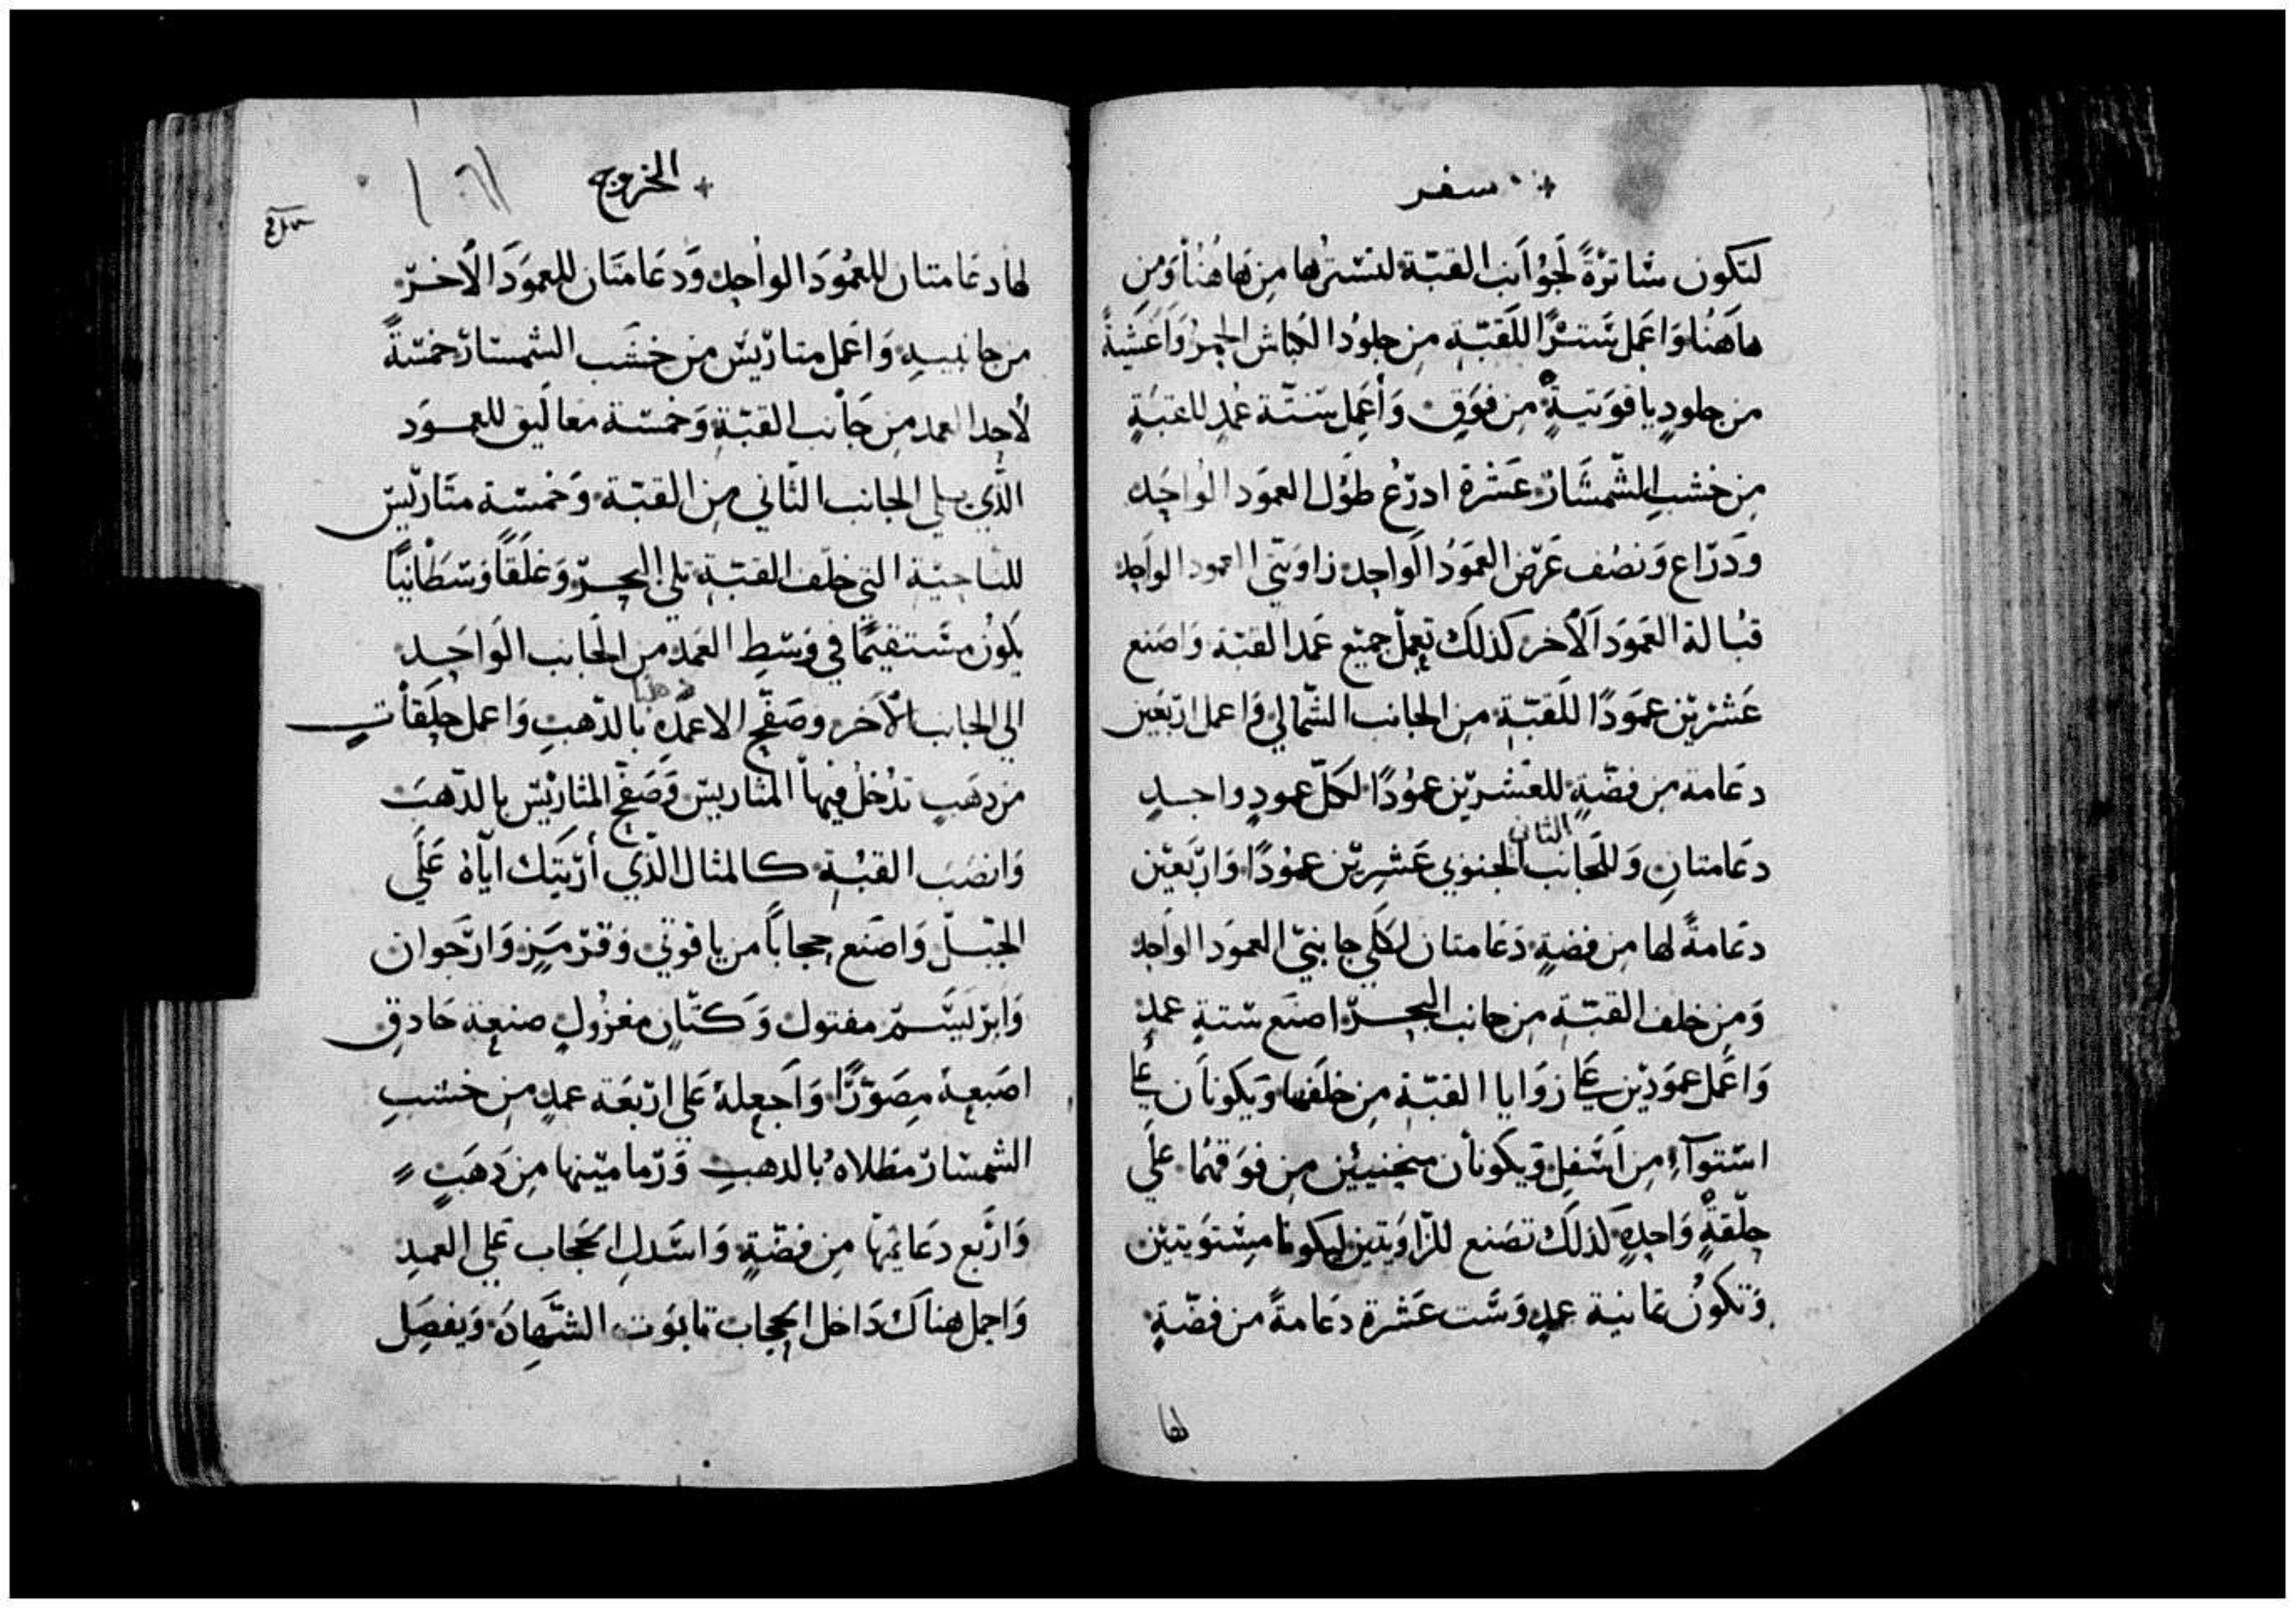 سفر
لتكون ساترةً لجوانب القبّة لتسترها من هاهُنا وَمن
هاهَنُا وَاعمل سَترًا للقبّة من جلودُ الكباش الحمرُ وَاغَشيةً
من جلودٍ ياقوَتيةٍ من فوَقٍ وَأعمل ستّة عُمدٍ للقبَةٍ
من خشبِ الشّمشَارَ عَشرة ادرّع طوُل العموَد الواحَد
وَدرّاع وَنصُف عَرّض العَموَدُ الَواحد زاوَيتّي العمود الواحد
قبُالة العَموَد الآخر كذلَك تعملّ جميَع عَمد القبّة وَاصَنع
عَشريّن عموَدًا للَقبّة من الجانب الشّمالي وَاعمل اربّعَين
دعَامة من فضّةٍ للعَشريّن عموُدًا لكلّ عمودٍ واحدٍ
دعَامتانِ وَللجَانب الثاني الجنوبي عَشرِيّن عموُدًا وَاربّعَين
دعَامةً لها من فضةٍ دَعَامتان لكلي جانبيّ العموَد الوَاحد
وَمن خلف القبّة من جانب البحرّ اصنَع ستةِ عمدٍ
وَاعَمل عموَديّن علَي زوَايا القبّة من خلفَها وَيكونَان علَي
استوآءِ من اسَفلِ وَيكونأن منحنيئين من فوَقهُما علَي
حلّقةٍ وَاحدةٍ كذلَك تصَنع للزّاوَيتين ليكونَا مستوَيتيَن
وَتكوُن ثمانية عمدٍ وَستَ عَشرة دعَامةً من فضّةٍ
لها
الخروج
لها دعَامتان للعمُوَد الوَاحد وَدعَامتَان للعموَد الآخرّ
من جانبيهِ وَاعَمل متاريّسَ من خشَب الشمشارَ خمسّةً
لأحد العمد من جَانب القبّةِ وَخمسّة معَاليق للعموَد
الّذي يلي الجانب الثّاني من القبّة وَخمسّة متَاريّس
للناحيّة التي خلّف القبّةِ تلي البحرّ وَغلَقاً وَسَطَانيًا
يكوُن مسَتقيمًا في وَسَطِ العَمدِ من الجَانب الوَاحَد
الي الجانب الآخَر وصَفّح الاعمَدة بالذّهبِ وَاعمل حلِقَاتٍ
من دهَبٍ تدُخلُ فيها المتَاريسّ وَصَفّح المتَاريّس بالدّهبَ
وَانصَب القبُة كالمثال الّذي أرَيتَك ايّاهُ عَلَي
الجبَلّ وَاصَنع حجابَاً من ياقوتيٍ وَقرّمَزٍ وَارّجَوان
وَابرّيسَم مفتول وَكتّان مغزُولٍ صنعة حَادقٍ
اصَنعهُ مصَوّرًا وَاجَعلهُ عَلي اربّعَة عمدٍ من خشبِ
الشمشارَ مطَلاهُ بالدهبِ وَرّماميّنها من دَهَبٍ
وَارّبع دعَائمهَا من فضّةٍ وَاسَدل الحَجاب عَلي العمدِ
وَاجعل هنَاك دَاخل الحجاب تابوَت الشّهادَة وَيفصَل